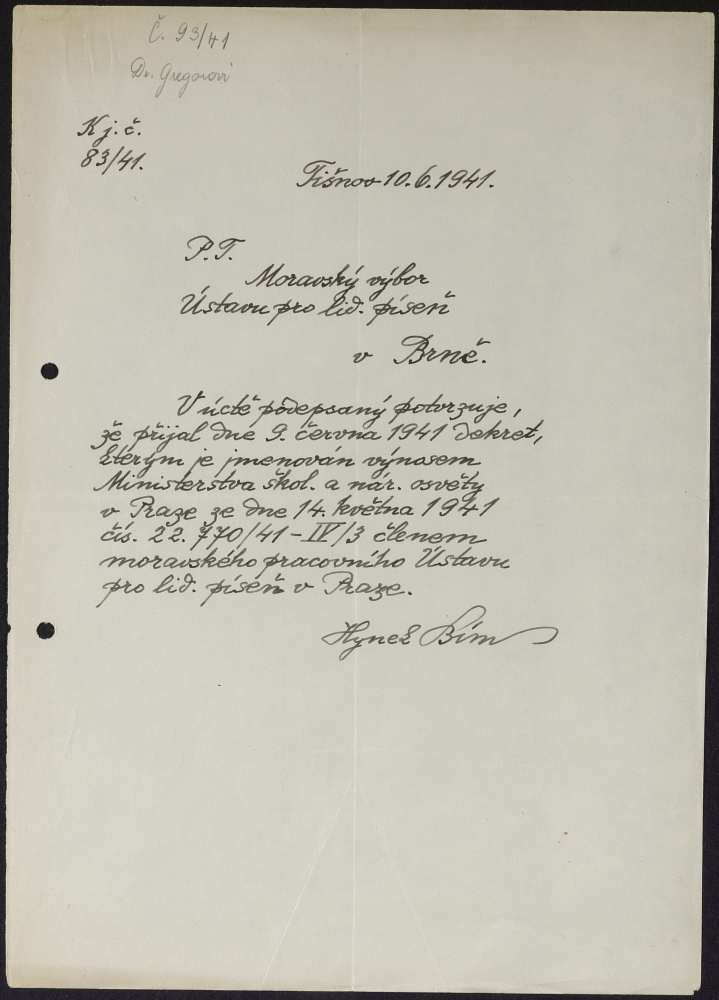 Č. 93/41
Dr. Gregorovi
K j. č.
83/41.
Tišnov 10.6.1941.
P.T.
Moravský výbor
Ústavu pro lid. píseň
v Brně.
V úctě podepsaný potvrzuje,
že přijal dne 9. června 1941 dekret,
kterým je jmenován výnosem
Ministerstva škol. a nár. osvěty
v Praze ze dne 14. května 1941
čís. 22.770/41-IV/3 členem
moravského pracovního Ústavu
pro lid. píseň v Praze.
Hynek Bím